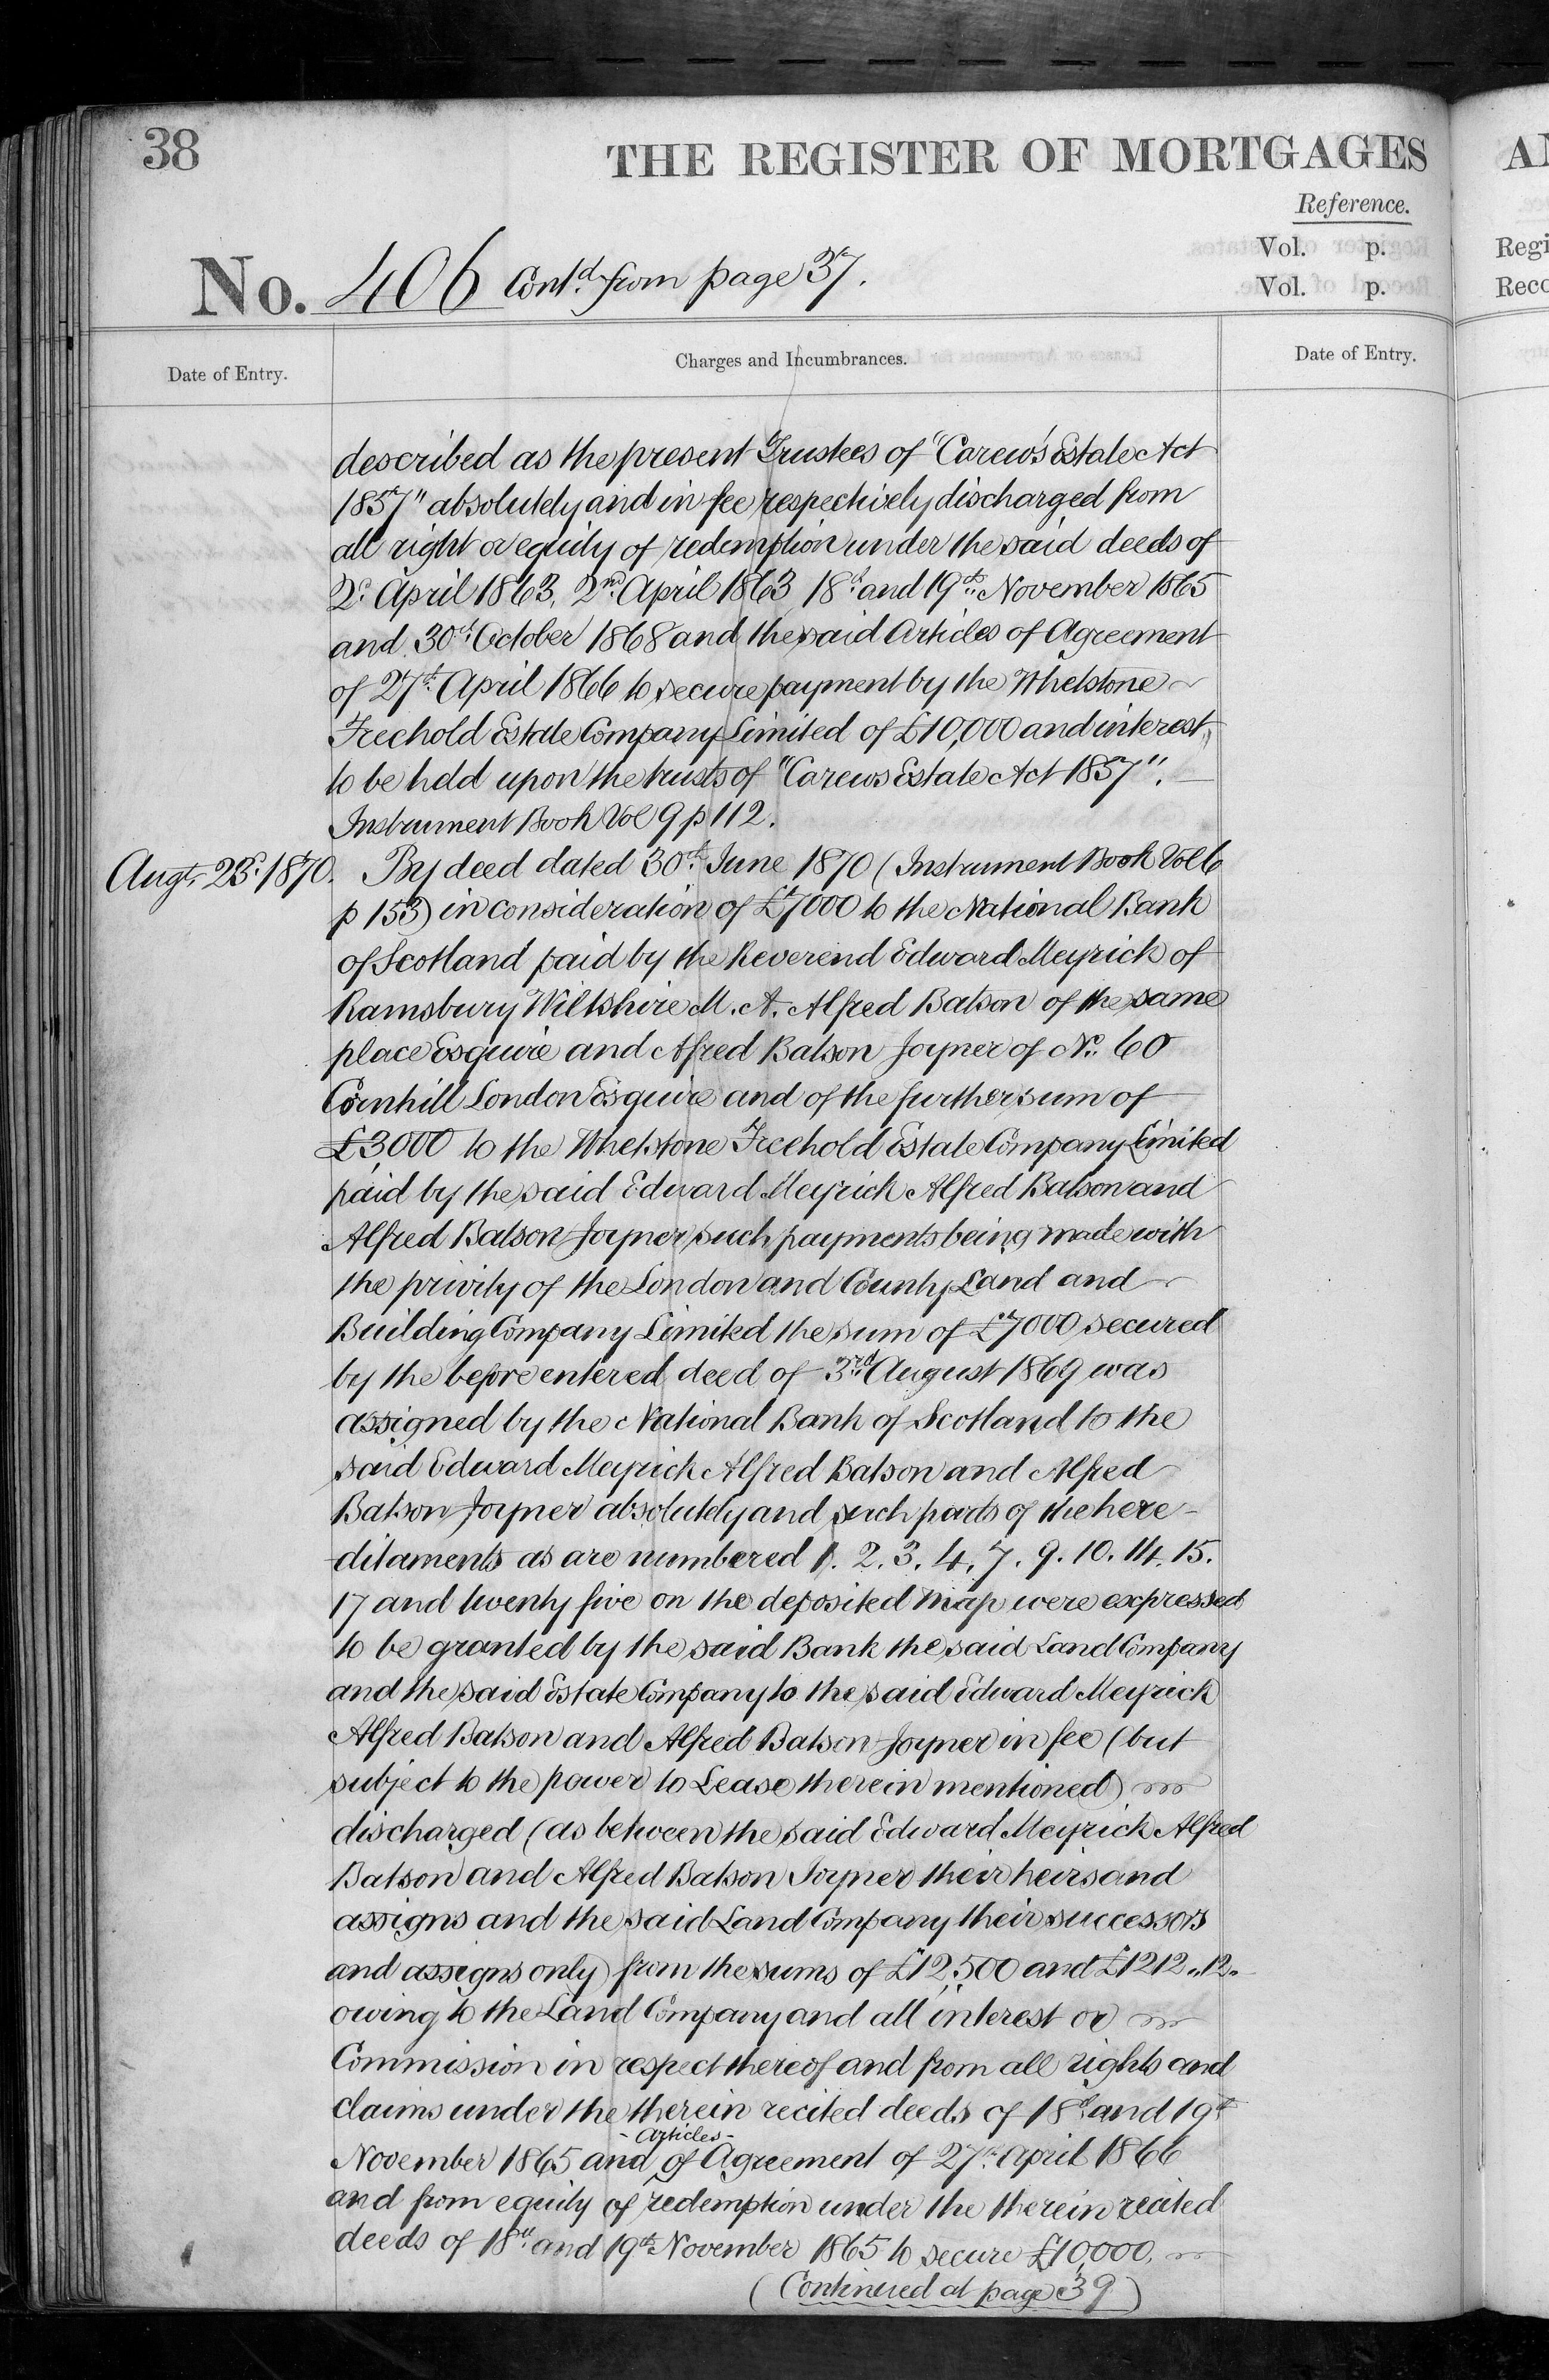 38
THE REGISTER OF MORTGAGES
Reference.
Vol. p.
Vol. p.
No. 406 Contd. from page 37.
Date of Entry.
Charges and Incumbrances.
Date of Entry.
described as the present Trustees of "Carew's Estate Act
1857" absolutely and in fee respectively discharged from
all right or equity of redemption under the said deeds of
2d. April 1863, 2nd. April 1863 18th. and 19th. November 1865
and 30th. October 1868 and the said Articles of Agreement
of 27th. April 1866 to secure payment by the Whetstone
Freehold Estate Company Limited of £10,000 and interest,
to be held upon the trusts of "Carews Estate Act 1857".
Instrument Book Vol 9 p 112.
Augt. 23d. 1870. By deed dated 30th. June 1870 (Instrument Book Vol 6
p 153) in consideration of £7000 to the National Bank
of Scotland paid by the Reverend Edward Meyrick of
Ramsbury Wiltshire M. A. Alfred Batson of the same
place Esquire and Alfred Batson Joyner of No. 60
Cornhill London Esquire and of the further sum of
£3,000 to the Whetstone Freehold Estate Company Limited
paid by the said Edward Meyrick Alfred Batson and
Alfred Batson Joyner such payments being made with
the privity of the London and County Land and
Building Company Limited the sum of £7000 secured
by the before entered deed of 3rd. August 1869 was
assigned by the National Bank of Scotland to the
said Edward Meyrick Alfred Batson and Alfred
Batson Joyner absolutely and such parts of the here-
-ditaments as are numbered 1. 2. 3. 4. 7. 9. 10. 14. 15.
17 and twenty five on the deposited Map were expressed
to be granted by the said Bank the said Land Company
and the said Estate Company to the said Edward Meyrick
Alfred Batson and Alfred Batson Joyner in fee (but
subject to the power to Lease therein mentioned)
discharged (as between the said Edward Meyrick Alfred
Batson and Alfred Batson Joyner their heirs and
assigns and the said Land Company their successors
and assigns only) from the sums of £12,500 and £1212.,12.
owing to the Land Company and all interest or
Commission in respect thereof and from all rights and
claims under the therein recited deeds of 18th. and 19th
- Articles -
November 1865 and of Agreement of 27th. April 1866
and from equity of redemption under the therein recited
deeds of 18th. and 19th. November 1865 to secure £10,000,
(Continued at page 39)
AN
Regi
Reco